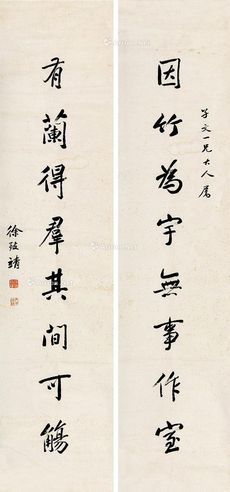 文一兄大人屬
因竹為宇無事作室
有蘭得羣其間可觴
徐致靖